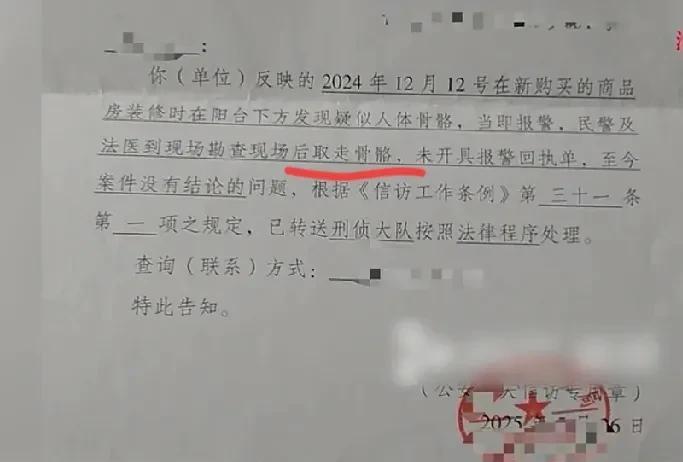 :
你（单位）反映的2024年12月12号在新购买的商品
房装修时在阳台下方发现疑似人体骨骼，当即报警，民警及
法医到现场勘查现场后取走骨骼，未开具报警回执单，至今
案件没有结论的问题，根据《信访工作条例》第 三十一 条
第 一 项之规定，已转送刑侦大队按照法律程序处理。
查询（联系）方式：
特此告知。
（公安 信访专用章）
2025年 月 6日